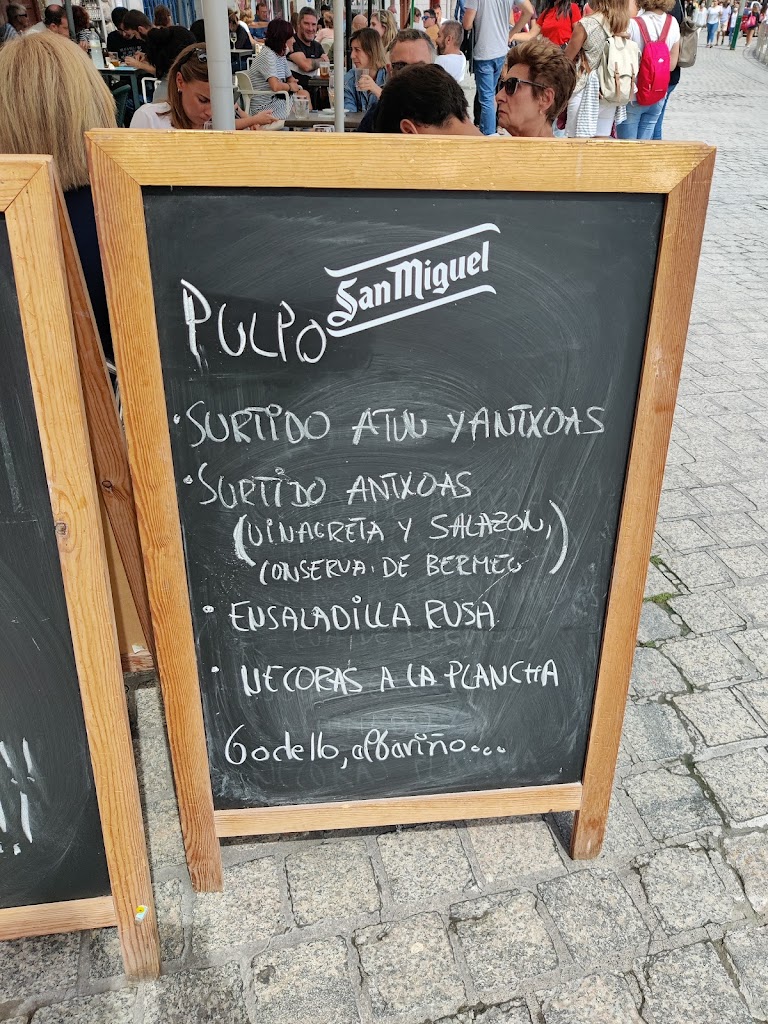 San Miguel
PULPO
• SURTIDO ATUN Y ANTXOAS
• SURTIDO ANTXOAS
(VINAGRETA Y SALAZON,
CONSERVA DE BERMEO)
• ENSALADILLA RUSA
• NECORAS A LA PLANCHA
Godello, albariño...
!!